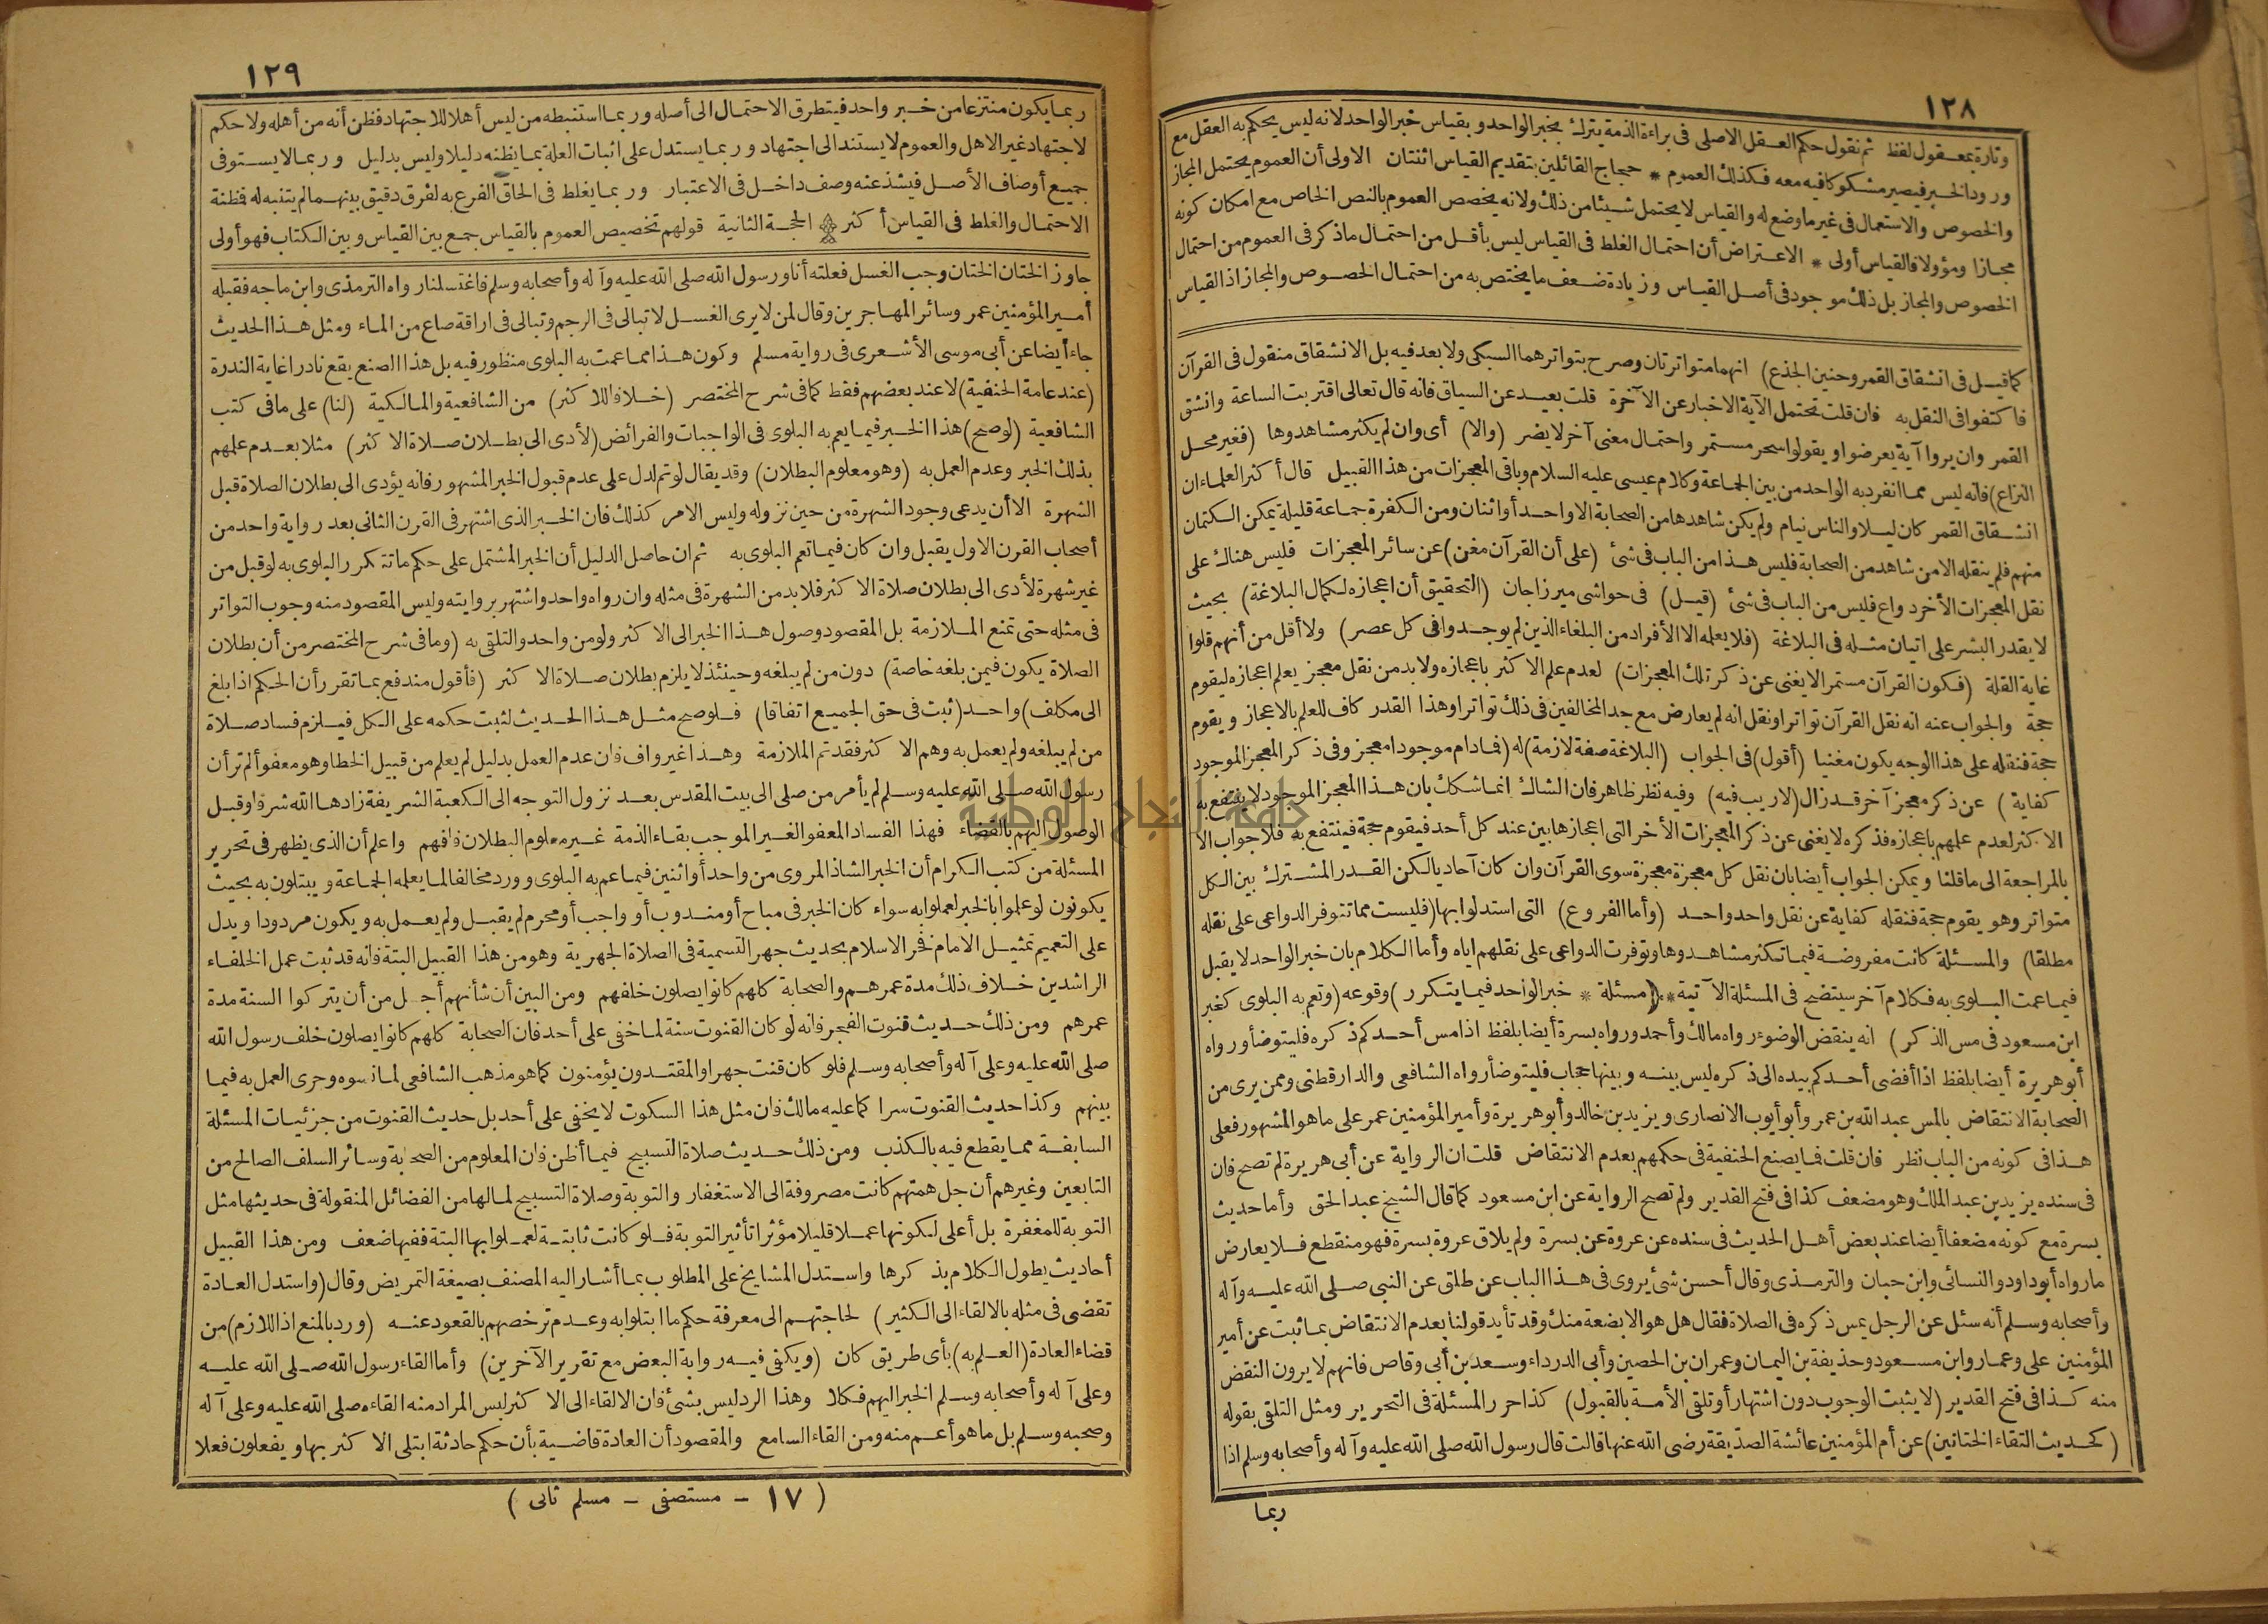 ١٢٨
وتارة بمعقول لفظ ثم نقول حكم العقل الاصلى فى براءة الذمة يترك بخبر الواحد وبقياس خبر الواحد لانه ليس يحكم به العقل مع
ورود الخبر فيصير مشكوكا فيه معه فكذلك العموم * حجاج القائلين بتقديم القياس اثنتان الاولى أن العموم يحتمل المجاز
والخصوص والاستعمال فى غير ما وضع له والقياس لا يحتمل شيئا من ذلك ولانه يخصص العموم بالنص الخاص مع امكان كونه
مجازا ومؤولا فالقياس أولى * الاعتراض أن احتمال الغلط فى القياس ليس بأقل من احتمال ما ذكر فى العموم من احتمال
الخصوص والمجاز بل ذلك موجود فى أصل القياس وزيادة ضعف ما يختص به من احتمال الخصوص والمجاز اذ القياس
كما قيل فى انشقاق القمر وحنين الجذع) انهما متواترتان وصرح بتواترهما السبكى ولا بعد فيه بل الانشقاق منقول فى القرآن
فاكتفوا فى النقل به فان قلت تحتمل الآية الاخبار عن الآخرة قلت بعيد عن السياق فانه قال تعالى اقتربت الساعة وانشق
القمر وان يروا آية يعرضوا ويقولوا سحر مستمر واحتمال معنى آخر لا يضر (والا) أى وان لم يكثر مشاهدوها (فغير محل
النزاع) فانه ليس مما انفرد به الواحد من بين الجماعة وكلام عيسى عليه السلام وباقى المعجزات من هذا القبيل قال أكثر العلماء ان
انشقاق القمر كان ليلا والناس نيام ولم يكن شاهدها من الصحابة الا واحد أو اثنان ومن الكفرة جماعة قليلة يمكن الكتمان
منهم فلم ينقله الا من شاهد من الصحابة فليس هذا من الباب فى شئ (على أن القرآن مغن) عن سائر المعجزات فليس هناك على
نقل المعجزات الأخر دواع فليس من الباب فى شئ (قيل) فى حواشى ميرزاجان (التحقيق أن اعجازه لكمال البلاغة) بحيث
لا يقدر البشر على اتيان مثله فى البلاغة (فلا يعلمه الا الأفراد من البلغاء الذين لم يوجدوا فى كل عصر) ولا أقل من أنهم قلوا
غاية القلة (فكون القرآن مستمرا لا يغنى عن ذكر تلك المعجزات) لعدم علم الاكثر باعجازه ولا بد من نقل معجز يعلم اعجازه ليقوم
حجة والجواب عنه انه نقل القرآن تواترا ونقل انه لم يعارض مع جد المخالفين فى ذلك تواترا وهذا القدر كاف للعلم بالاعجاز ويقوم
حجة فنقله على هذا الوجه يكون مغنيا (أقول) فى الجواب (البلاغة صفة لازمة) له (فما دام موجودا معجز وفى ذكر المعجز الموجود
كفاية) عن ذكر معجز آخر قد زال (لاريب فيه) وفيه نظر ظاهر فان الشاك انما شكك بان هذا المعجز الموجود لا ينتفع به
الاكثر لعدم علمهم باعجازه فذكره لا يغنى عن ذكر المعجزات الأخر التى اعجازها بين عند كل أحد فيقوم حجة فينتفع به فلا جواب الا
بالمراجعة الى ما قلنا ويمكن الجواب أيضا بان نقل كل معجزة معجزة سوى القرآن وان كان آحاديا لكن القدر المشترك بين الكل
متواتر وهو يقوم حجة فنقله كفاية عن نقل واحد واحد (وأما الفروع) التى استدلوا بها (فليست مما تتوفر الدواعى على نقله
مطلقا) والمسئلة كانت مفروضة فيما تكثر مشاهدوها وتوفرت الدواعى على نقلهم اياه وأما الكلام بان خبر الواحد لا يقبل
فيما عمت البلوى به فكلام آخر سيتضح فى المسئلة الآتية * (مسئلة * خبر الواحد فيما يتكرر) وقوعه (وتعم به البلوى كخبر
ابن مسعود فى مس الذكر) انه ينقض الوضوء رواه مالك وأحمد ورواه بسرة أيضا بلفظ اذا مس أحدكم ذكره فليتوضأ ورواه
أبو هريرة أيضا بلفظ اذا أفضى أحدكم بيده الى ذكره ليس بينه وبينها حجاب فليتوضأ رواه الشافعى والدارقطنى وممن يرى من
الصحابة الانتقاض بالمس عبد الله بن عمر وأبو أيوب الانصارى ويزيد بن خالد وأبو هريرة وأمير المؤمنين عمر على ما هو المشهور فعلى
هذا فى كونه من الباب نظر فان قلت فما يصنع الحنفية فى حكمهم بعدم الانتقاض قلت ان الرواية عن أبى هريرة لم تصح فان
فى سنده يزيد بن عبد الملك وهو مضعف كذا فى فتح القدير ولم تصح الرواية عن ابن مسعود كما قال الشيخ عبد الحق وأما حديث
بسرة مع كونه مضعفا أيضا عند بعض أهل الحديث فى سنده عن عروة عن بسرة ولم يلاق عروة بسرة فهو منقطع فلا يعارض
ما رواه أبو داود والنسائى وابن حبان والترمذى وقال أحسن شئ يروى فى هذا الباب عن طلق عن النبى صلى الله عليه وآله
وأصحابه وسلم أنه سئل عن الرجل يمس ذكره فى الصلاة فقال هل هو الا بضعة منك وقد تأيد قولنا بعدم الانتقاض بما ثبت عن أمير
المؤمنين على وعمار وابن مسعود وحذيفة بن اليمان وعمران بن الحصين وأبى الدرداء وسعد بن أبى وقاص فانهم لا يرون النقض
منه كذا فى فتح القدير (لا يثبت الوجوب دون اشتهار أو تلقى الأمة بالقبول) كذا حرر المسئلة فى التحرير ومثل التلقى بقوله
(كحديث التقاء الختانين) عن أم المؤمنين عائشة الصديقة رضى الله عنها قالت قال رسول الله صلى الله عليه وآله وأصحابه وسلم اذا
ربما
١٢٩
ربما يكون منتزعا من خبر واحد فيتطرق الاحتمال الى أصله وربما استنبطه من ليس أهلا للاجتهاد فظن أنه من أهله ولا حكم
لاجتهاد غير الاهل والعموم لا يستند الى اجتهاد وربما يستدل على اثبات العلة بما يظنه دليلا وليس بدليل وربما لا يستوفى
جميع أوصاف الأصل فيشذ عنه وصف داخل فى الاعتبار وربما يغلط فى الحاق الفرع به لفرق دقيق بينهما لم يتنبه له فظنة
الاحتمال والغلط فى القياس أكثر * الحجة الثانية قولهم تخصيص العموم بالقياس جمع بين القياس وبين الكتاب فهو أولى
جاوز الختان الختان وجب الغسل فعلته أنا ورسول الله صلى الله عليه وآله وأصحابه وسلم فاغتسلنا رواه الترمذى وابن ماجه فقبله
أمير المؤمنين عمر وسائر المهاجرين وقال لمن لا يرى الغسل لا تبالى فى الرجم وتبالى فى اراقة صاع من الماء ومثل هذا الحديث
جاء أيضا عن أبى موسى الأشعرى فى رواية مسلم وكون هذا مما عمت به البلوى منظور فيه بل هذا الصنع يقع نادرا غاية الندرة
(عند عامة الحنفية) لا عند بعضهم فقط كما فى شرح المختصر (خلافا للاكثر) من الشافعية والمالكية (لنا) على ما فى كتب
الشافعية (لو صح) هذا الخبر فيما يعم به البلوى فى الواجبات والفرائض (لأدى الى بطلان صلاة الاكثر) مثلا بعدم علمهم
بذلك الخبر وعدم العمل به (وهو معلوم البطلان) وقد يقال لو تم لدل على عدم قبول الخبر المشهور فانه يؤدى الى بطلان الصلاة قبل
الشهرة الا أن يدعى وجود الشهرة من حين نزوله وليس الامر كذلك فان الخبر الذى اشتهر فى القرن الثانى بعد رواية واحد من
أصحاب القرن الاول يقبل وان كان فيما تعم البلوى به ثم ان حاصل الدليل أن الخبر المشتمل على حكم ما تتكرر البلوى به لو قبل من
غير شهرة لأدى الى بطلان صلاة الاكثر فلا بد من الشهرة فى مثله وان رواه واحد واشتهر بروايته وليس المقصود منه وجوب التواتر
فى مثله حتى تمنع الملازمة بل المقصود وصول هذا الخبر الى الاكثر ولو من واحد والتلقى به (وما فى شرح المختصر من أن بطلان
الصلاة يكون فيمن بلغه خاصة) دون من لم يبلغه وحينئذ لا يلزم بطلان صلاة الاكثر (فأقول مندفع بما تقرر أن الحكم اذا بلغ
الى مكلف) واحد (ثبت فى حق الجميع اتفاقا) فلو صح مثل هذا الحديث لثبت حكمه على الكل فيلزم فساد صلاة
من لم يبلغه ولم يعمل به وهم الاكثر فقد تم الملازمة وهذا غير واف فان عدم العمل بدليل لم يعلم من قبيل الخطا وهو معفو ألم تر أن
رسول الله صلى الله عليه وسلم لم يأمر من صلى الى بيت المقدس بعد نزول التوجه الى الكعبة الشريفة زادها الله شرفا وقبل
الوصول اليهم بالقضاء فهذا الفساد المعفو الغير الموجب بقاء الذمة غير معلوم البطلان فافهم واعلم أن الذى يظهر فى تحرير
المسئلة من كتب الكرام أن الخبر الشاذ المروى من واحد أو اثنين فيما عم به البلوى وورد مخالفا لما يعلمه الجماعة ويبتلون به بحيث
يكونون لو علموا بالخبر لعملوا به سواء كان الخبر فى مباح أو مندوب أو واجب أو محرم لم يقبل ولم يعمل به ويكون مردودا ويدل
على التعميم تمثيل الامام فخر الاسلام بحديث جهر التسمية فى الصلاة الجهرية وهو من هذا القبيل البتة فانه قد ثبت عمل الخلفاء
الراشدين خلاف ذلك مدة عمرهم والصحابة كلهم كانوا يصلون خلفهم ومن البين أن شأنهم أجل من أن يتركوا السنة مدة
عمرهم ومن ذلك حديث قنوت الفجر فانه لو كان القنوت سنة لما خفى على أحد فان الصحابة كلهم كانوا يصلون خلف رسول الله
صلى الله عليه وعلى آله وأصحابه وسلم فلو كان قنت جهرا والمقتدون يؤمنون كما هو مذهب الشافعى لما نسوه وجرى العمل به فيما
بينهم وكذا حديث القنوت سرا كما عليه مالك فان مثل هذا السكوت لا يخفى على أحد بل حديث القنوت من جزئيات المسئلة
السابقة مما يقطع فيه بالكذب ومن ذلك حديث صلاة التسبيح فيما أظن فان المعلوم من الصحابة وسائر السلف الصالح من
التابعين وغيرهم أن جل همتهم كانت مصروفة الى الاستغفار والتوبة وصلاة التسبيح لمالها من الفضائل المنقولة فى حديثها مثل
التوبة للمغفرة بل أعلى لكونها عملا قليلا مؤثرا تأثير التوبة فلو كانت ثابتة لعملوا بها البتة ففيها ضعف ومن هذا القبيل
أحاديث يطول الكلام بذكرها واستدل المشايخ على المطلوب بما أشار اليه المصنف بصيغة التمريض وقال (واستدل العادة
تقضى فى مثله بالالقاء الى الكثير) لحاجتهم الى معرفة حكم ما ابتلوا به وعدم ترخصهم بالقعود عنه (ورد بالمنع اذ اللازم) من
قضاء العادة (العلم به) بأى طريق كان (ويكفى فيه رواية البعض مع تقرير الآخرين) وأما القاء رسول الله صلى الله عليه
وعلى آله وأصحابه وسلم الخبر اليهم فكلا وهذا الرد ليس بشئ فان الالقاء الى الاكثر ليس المراد منه القاءه صلى الله عليه وعلى آله
وصحبه وسلم بل ما هو أعم منه ومن القاء السامع والمقصود أن العادة قاضية بأن حكم حادثة ابتلى الاكثر بها ويفعلون فعلا
(١٧ - مستصفى - مسلم ثانى)
جامعة النجاح الوطنية